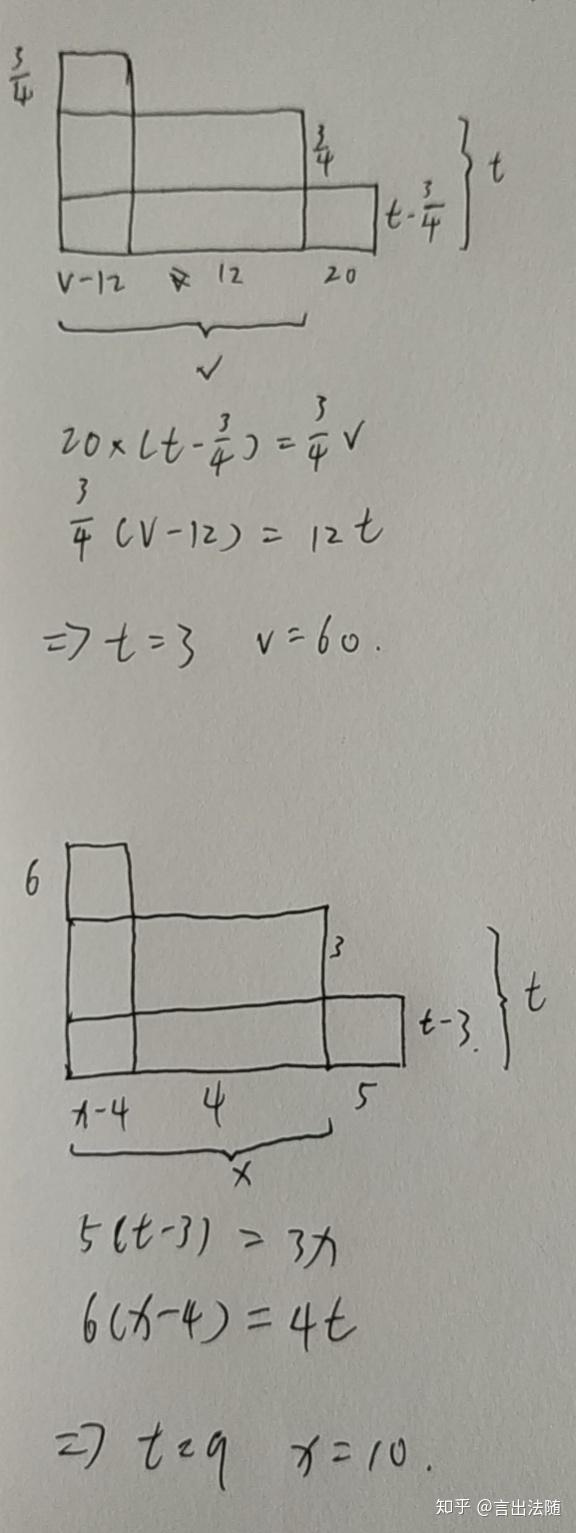 3/4
3/4
t - 3/4
t
v-12 12 20
v
20×(t - 3/4) = 3/4 v
3/4 (v-12) = 12t
=> t=3 v=60.
6
3
t-3.
t
x-4 4 5
x
5(t-3) = 3x
6(x-4) = 4t
=> t=9 x=10.
知乎 @言出法随